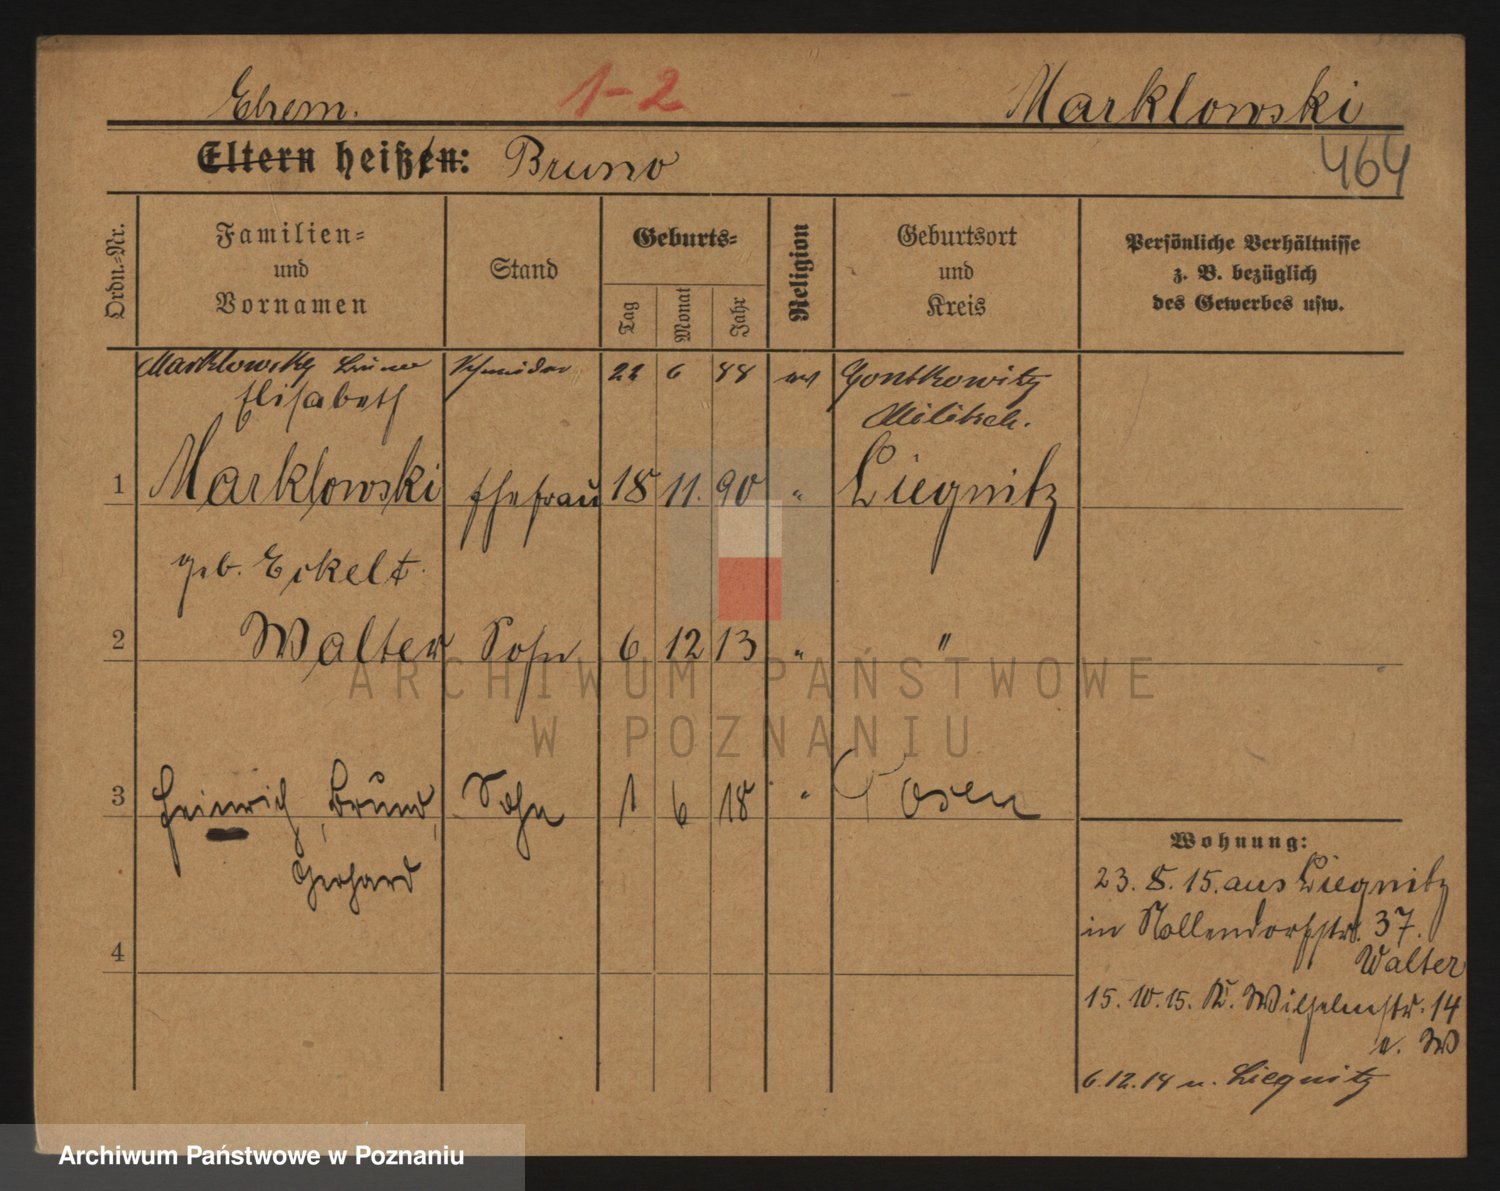 Ehem. 1-2 Marklowski
Eltern heißen: Bruno 464
Ordn.-Nr.
Familien-
und
Vornamen
Stand
Geburts-
Tag Monat Jahr
Religion
Geburtsort
und
Kreis
Persönliche Verhältnisse
z. B. bezüglich
des Gewerbes usw.
Marklowsky Bruno Schneider 22 6 88 ev Gontkowitz
Elisabeth Militsch.
1 Marklowski Ehefrau 18 11. 90 " Liegnitz
geb. Eckelt.
2 Walter Sohn 6 12 13 " "
3 Heinrich, Bruno, Sohn 1 6 18 " Posen
Gerhard
4
Wohnung:
23. 8. 15. aus Liegnitz
in Nollendorfstr. 37.
Walter
15. 10. 15. K. Wilhelmstr. 14
W
6.12.18 n. Liegnitz
ARCHIWUM PAŃSTWOWE
W POZNANIU
Archiwum Państwowe w Poznaniu